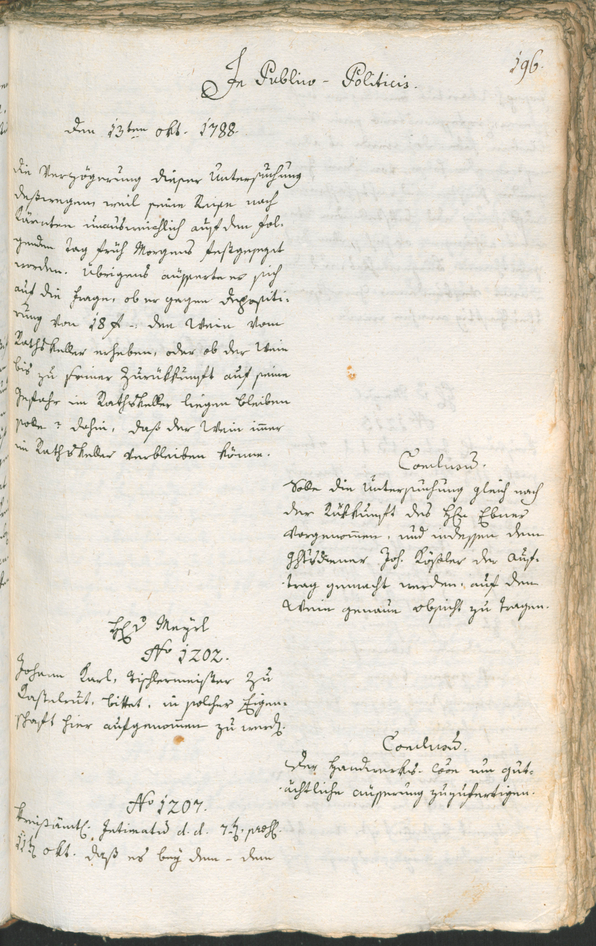 196.
In Publico-Politicis.
den 13ten Okt. 1788.
die Verzögerung dieser Untersuchung
deßwegen, weil seine Reise nach
Kärnten unausweichlich auf den fol-
genden Tag früh Morgens festgesezt
worden. Übrigens äusserte er sich
auf die Frage, ob er gegen Depositi-
rung von 18 f. den Wein vom
Rathskeller erheben, oder ob der Wein
bis zu seiner Zurükkunft auf seine
Gefahr im Rathskeller liegen bleiben
solle? dahin, daß der Wein imer
im Rathskeller verbleiben könne.
Conclusum.
Solle die Untersuchung gleich nach
der Rükkunft des H. Ebner
vorgenomen, und indessen dem
Joh. Kößler der Auf-
trag gemacht werden, auf den
Wein genaue obsicht zu tragen.
Mayrl
No 1202.
Johann Karl, Tischlermeister zu
Kastelrut, bittet, in solcher Eigen-
schaft hier aufgenomen zu werd.
Conclusum.
Der Handwerks um gut-
ächtliche äusserung zuzufertigen.
No 1207.
Kreisämtl. Intimatum d.d. 7t.
11t Okt. daß es bey dem - dem